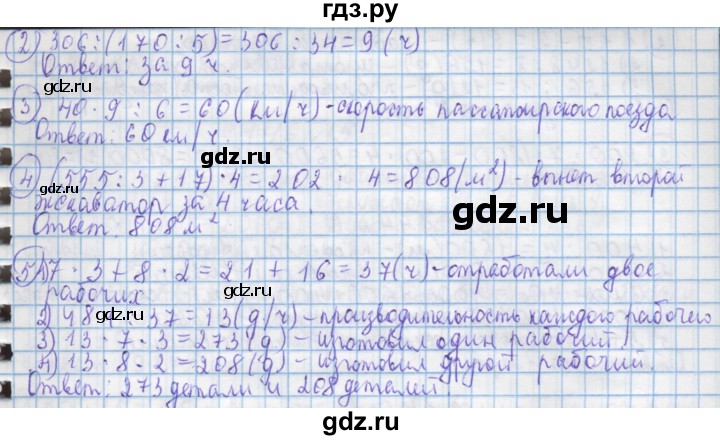 гдз.ру
2) 306 : (170 : 5) = 306 : 34 = 9 (ч)
Ответ: за 9 ч.
3) 40 · 9 : 6 = 60 (км/ч) - скорость пассажирского поезда
Ответ: 60 км/ч.
gdz.ru gdz.ru
4) (555 : 3 + 17) · 4 = 202 · 4 = 808 (м²) - вынет второй
экскаватор за 4 часа.
Ответ: 808 м²
5) 1) 7 · 3 + 8 · 2 = 21 + 16 = 37 (ч) - отработали двое
рабочих
2) 481 : 37 = 13 (д/ч) - производительность каждого рабочего
3) 13 · 7 · 3 = 273 (д) - изготовил один рабочий
gdz.ru gdz.ru
4) 13 · 8 · 2 = 208 (д) - изготовил другой рабочий.
Ответ: 273 детали и 208 деталей
gdz.ru